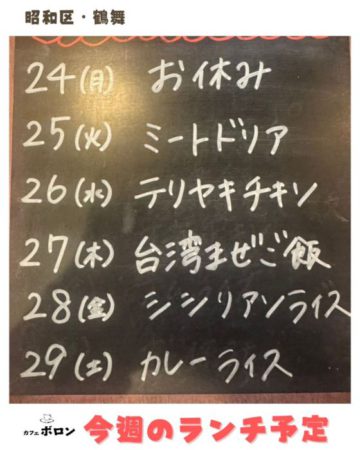 昭和区・鶴舞
24(月) お休み
25(火) ミートドリア
26(水) テリヤキチキン
27(木) 台湾まぜご飯
28(金) シシリアンライス
29(土) カレーライス
カフェ ボロン
今週のランチ予定